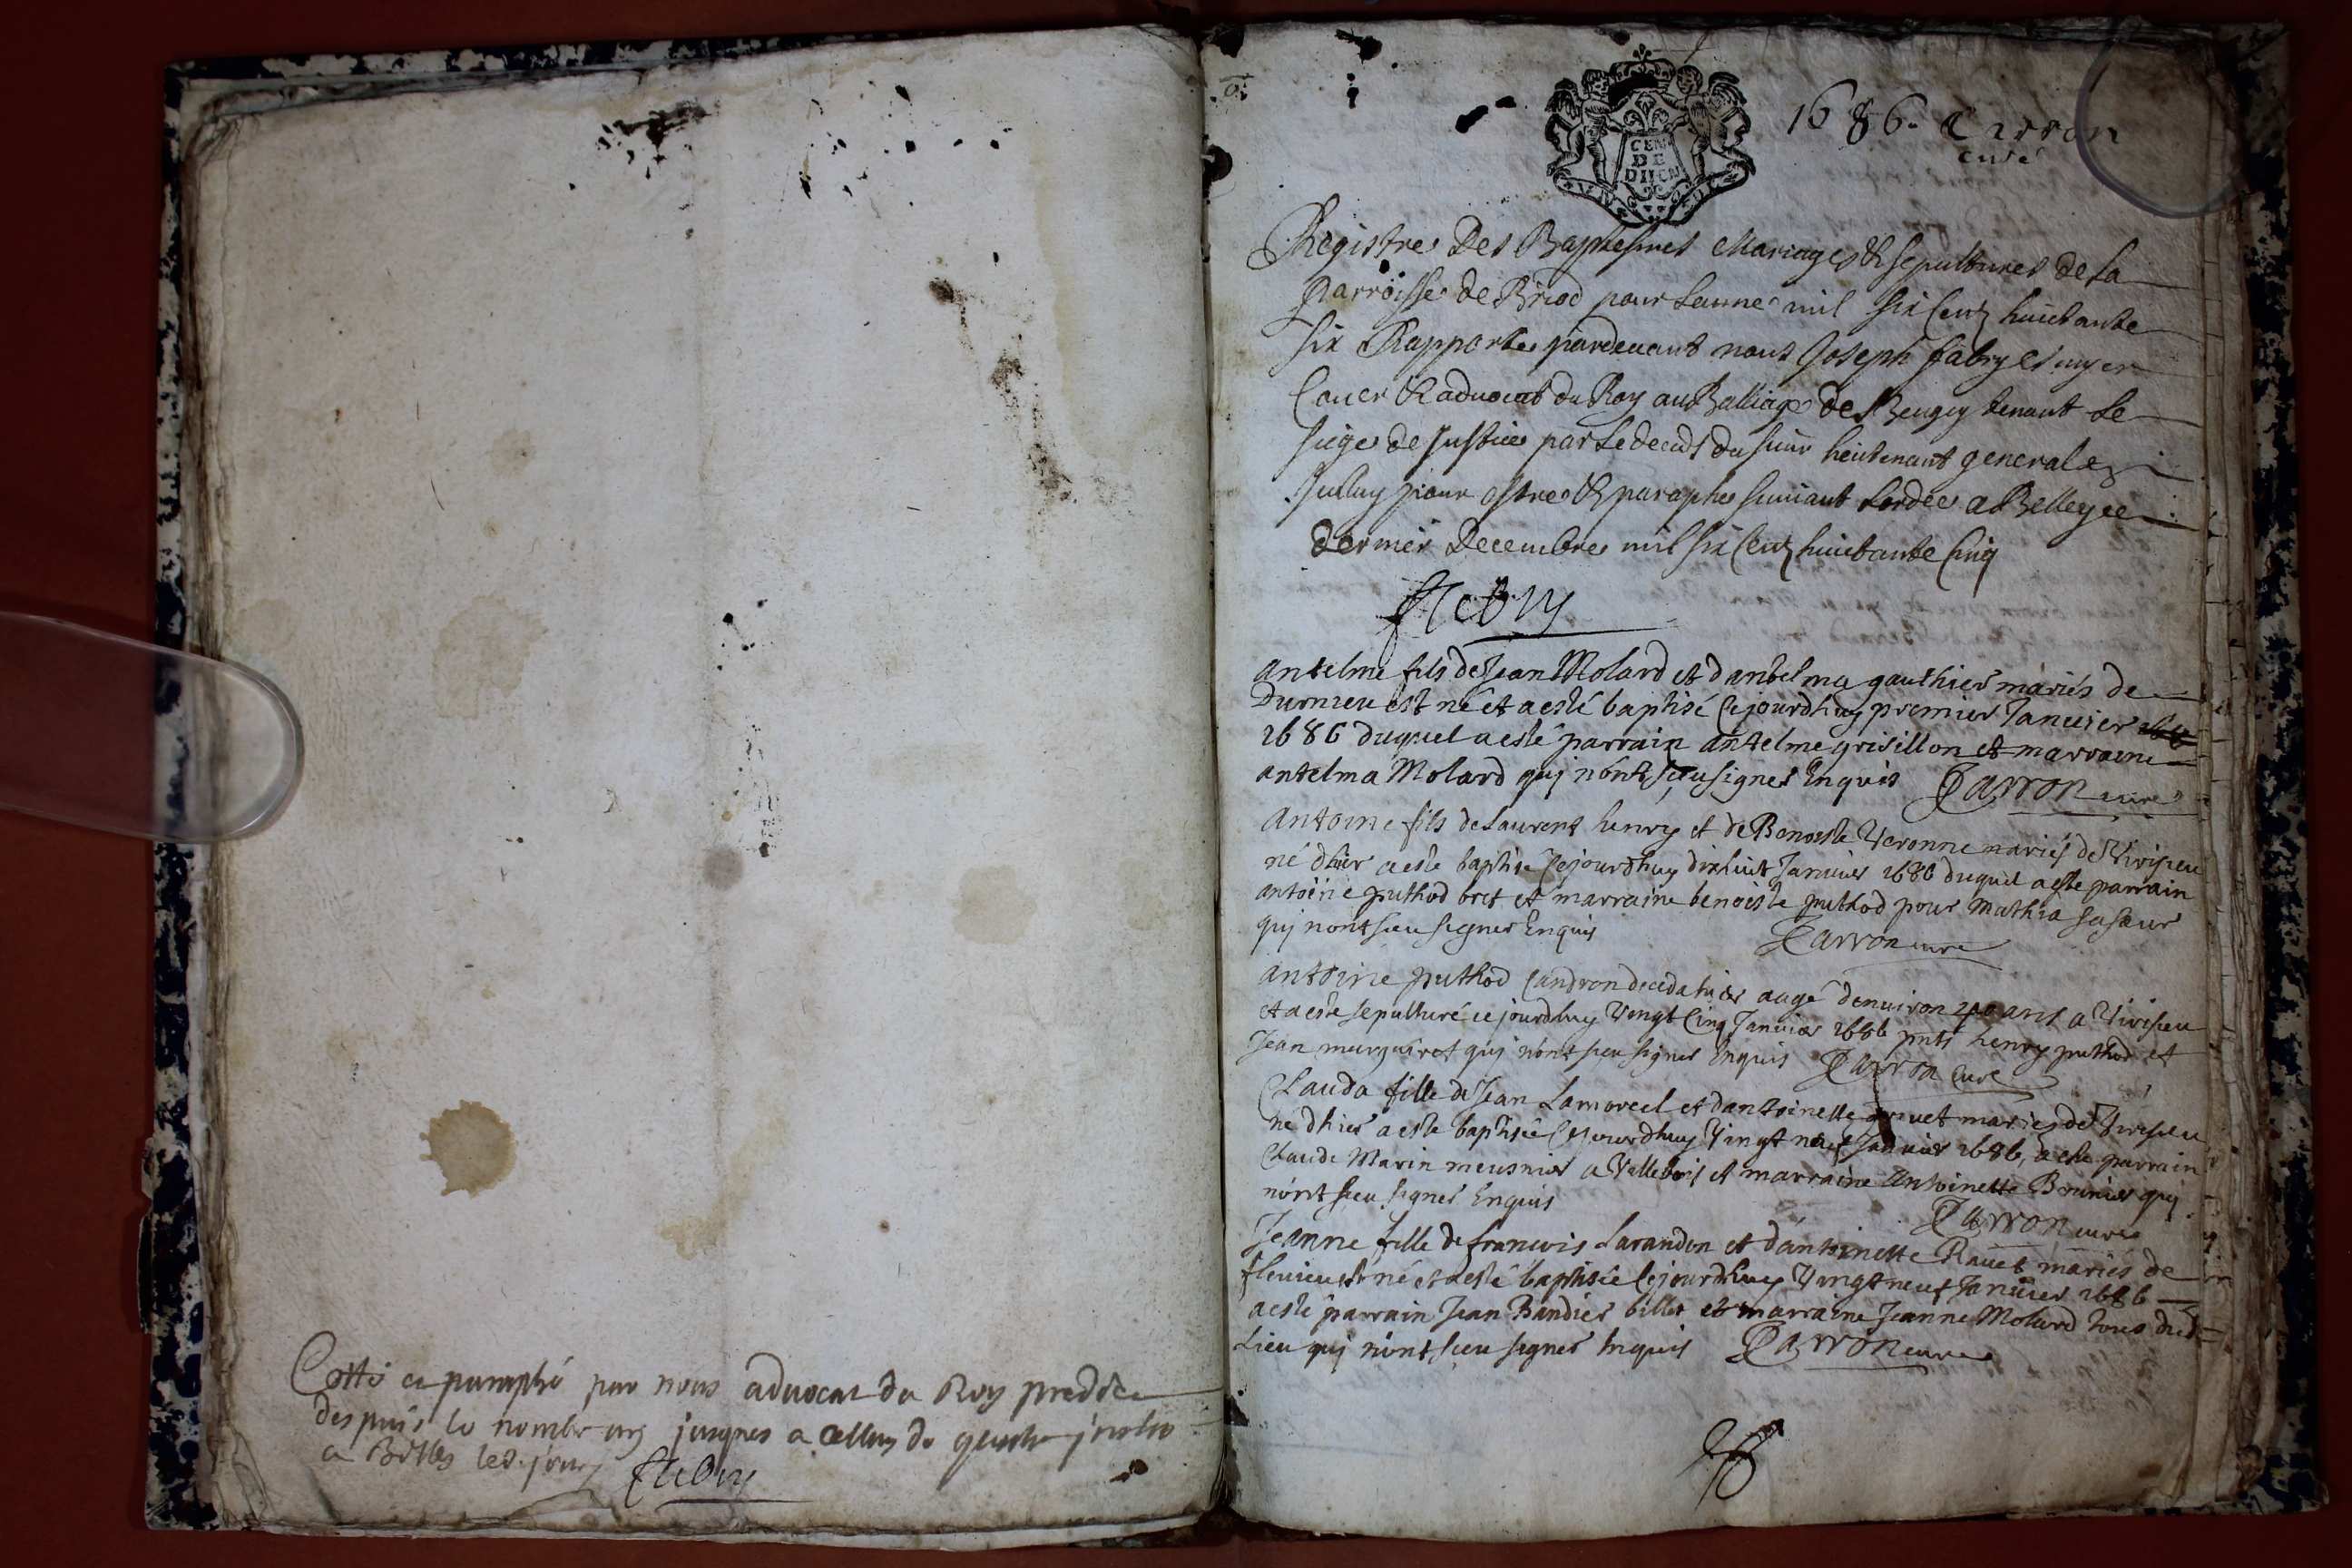 Cotté et paraphé par nous advocat du Roy predict
despuis le nombre un jusques a celluy de quatre
a Belley led. jour
Fabry
1686. Carron
curé
CEN
DE
DIJON
Registre Des Baptesmes Mariages & sepultures de la
parroisse de Briod pour lanné mil six centz huictante
six Rapporte pardevant nous Joseph fabry escuyer
Coner & advocat du Roy au Balliage de Beugey tenant le
siege de justice par le decds du sieur lieutenant general
pour estre & paraphe suivant lordce a Belley ce
dernier Decembre mil six centz huictante cinq
Fabry
antelme fils de Jean Molard et dantelma gauthier mariés de
Durnieu est né et a esté baptisé cejourdhuy premier Janvier
1686 duquel a esté parrain antelme grisillon et marraine
antelma Molard quj n'ont sceu signer Enquis Carron curé
Antoine fils de Laurent henry et de Benoiste Veronne mariés de Virisieu
né dhier a este baptisé cejourdhuy dixhuit Janvier 1686 duquel a esté parrain
antoine puthod bret et marraine benoiste puthod pour Mathia sa sœur
quj n'ont sceu signer Enquis Carron curé
antoine puthod candron deceda hier aagé denviron 40 ans a Virisieu
et a este sepulturé cejourdhuy Vingt cinq Janvier 1686 pnts henry puthod et
Jean murguiret quj n'ont sceu signer Enquis Carron curé
Clauda fille de Jean Lamorcel et dantoinette gruet mariez de Virisieu
né dhier a este baptisée cejourdhuy Vingt neuf Janvier 1686, a este parrain
Claude Marin meusnier a Vallebois et marraine Antoinette Bonnier quj
n'ont sceu signer Enquis Carron curé
Jeanne fille de francois Larandon et dantoinette Ravet mariés de
flevieu est né et a esté baptisée cejourdhuy Vingt neuf Janvier 1686
a esté parrain Jean Bandier billet et marraine Jeanne Molard tous dud
Lieu quj n'ont sceu signer Enquis Carron curé